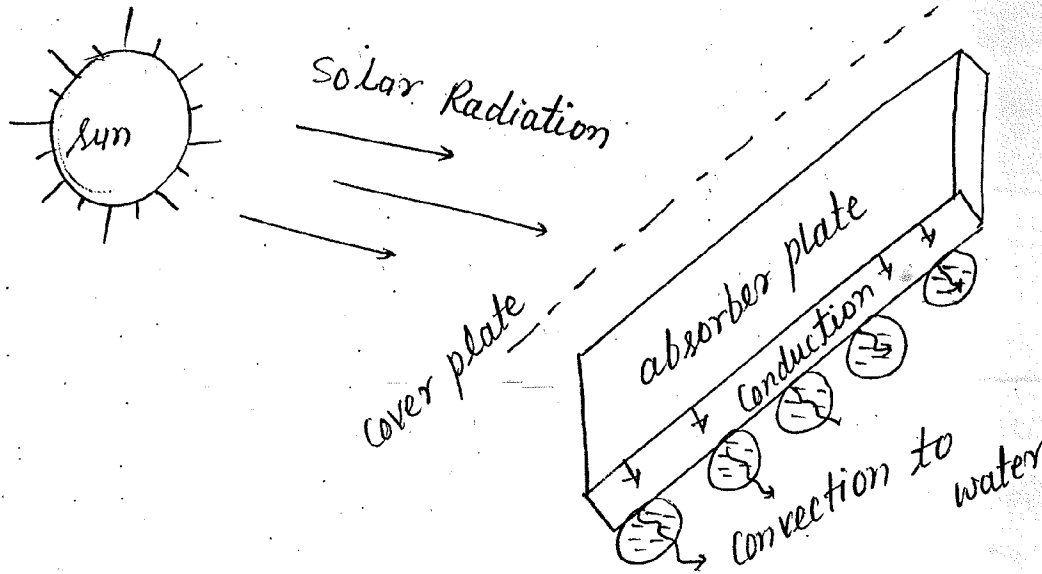 Sun
Solar Radiation
cover plate
absorber plate
Conduction
Convection to
water